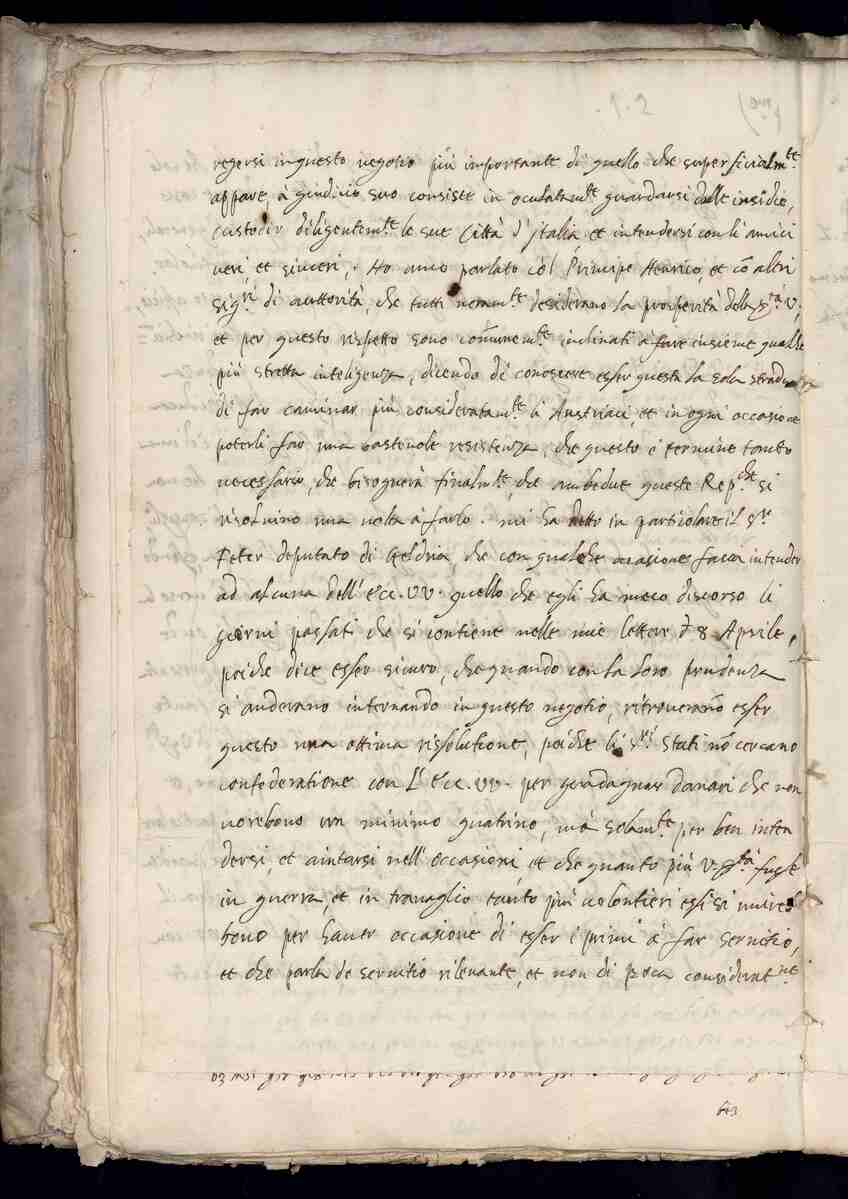 regersi in questo negotio più importante di quello che superficialm.te
appare, à giudicio suo consiste in oculatam.te guardarsi dalle insidie,
custodir diligentem.te le sue Città d'Italia, et intendersi con li amici
veri, et sinceri. Ho anco parlato col Principe Henrico, et cõ altri
sig.ri di auttorità, che tutti veram.te desiderano la prosperità della S.tà V.,
et per questo rispetto sono com̃unem.te inclinati à fare insieme qualche
più stretta inteligenza, dicendo di conoscere esser questa la sola strada
di far caminar più consideratam.te li Austriaci, et in ogni occasione
poterli far una bastevole resistenza, che questo è termine tanto
necessario, che bisognerà finalm.te, che ambedue queste Rep.che si
risolvino una volta à farlo. mi ha detto in particolare il S.r
Feter deputato di Geldria, che con qualche occasione facci intender
ad alcuna dell'Ecc. VV. quello che egli ha meco discorso li
giorni passati che si contiene nelle mie lettere d' 8 Aprile,
poiche dice esser sicuro, che quando con la loro prudenza
si anderano internando in questo negotio, ritroveranõ esser
questo una ottima rissolutione, poiche li S.ri Stati nõ cercano
confoderatione con l'Ecc. VV. per guadagnar danari che non
vorebono un minimo quatrino, mà solam.te per ben inten
dersi, et aiutarsi nell'occasioni, et che quanto più V. S.tà fusse
in guerra, et in travaglio tanto più volontieri essi si unireb
bono per haver occasione di esser i primi à far servitio,
et che parla de servitio rilevante, et non di poca considerat.ne